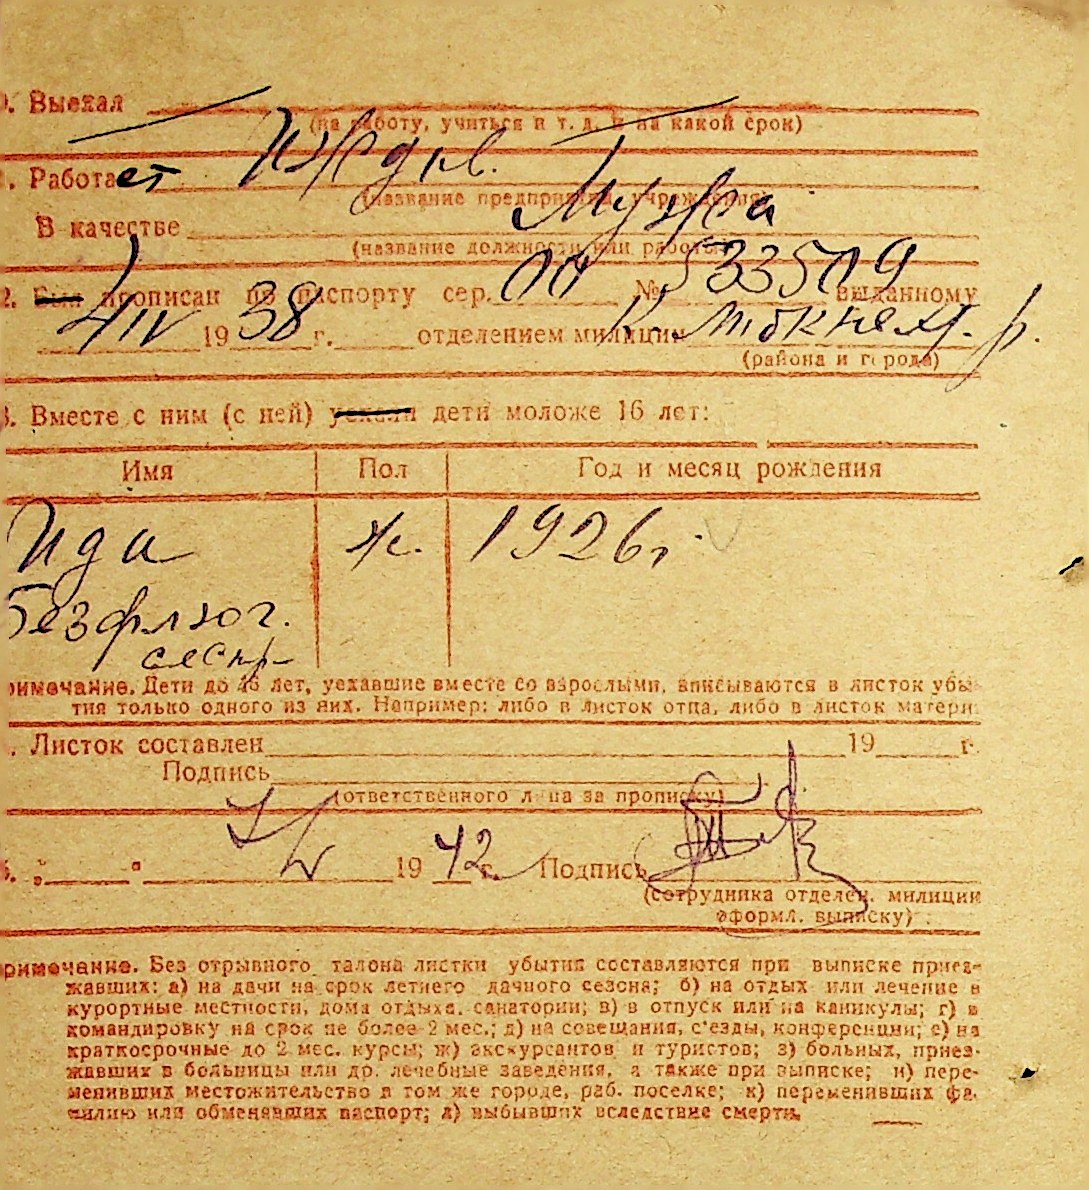 . Выехал
(на работу, учиться и т. д. и на какой срок)
Иждив.
. Работает
(название предприятия, учреждения)
Мужа
В качестве
(название должности или работы)
2. Был прописан по паспорту сер. № 533509 выданному
4/IV 1938 г. отделением милиции К. Либкнехт. р.
(района и города)
3. Вместе с ним (с ней) уехали дети моложе 16 лет:
Имя Пол Год и месяц рождения
Ида ж. 1926г.
Безфлюг.
сестр
римечание. Дети до 16 лет, уехавшие вместе со взрослыми, вписываются в листок убы-
тия только одного из них. Например: либо в листок отца, либо в листок матери.
. Листок составлен 19 г.
Подпись
(ответственного лица за прописку)
. " " 1942 г. Подпись
(сотрудника отделен. милиции
оформл. выписку)
римечание. Без отрывного талона листки убытия составляются при выписке приез-
жавших: а) на дачи на срок летнего дачного сезона; б) на отдых или лечение в
курортные местности, дома отдыха, санатории; в) в отпуск или на каникулы; г) в
командировку на срок не более 2 мес.; д) на совещания, с'езды, конференции; е) на
краткосрочные до 2 мес. курсы; ж) экскурсантов и туристов; з) больных, приез-
жавших в больницы или др. лечебные заведения, а также при выписке; и) пере-
менивших местожительство в том же городе, раб. поселке; к) переменивших фа-
милию или обменявших паспорт; л) выбывших вследствие смерти.